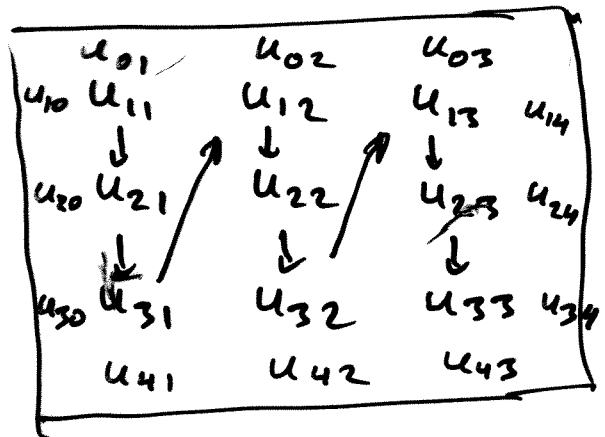 u01 u02 u03
u10 u11 u12 u13 u14
u20 u21 u22 u23 u24
u30 u31 u32 u33 u34
u41 u42 u43